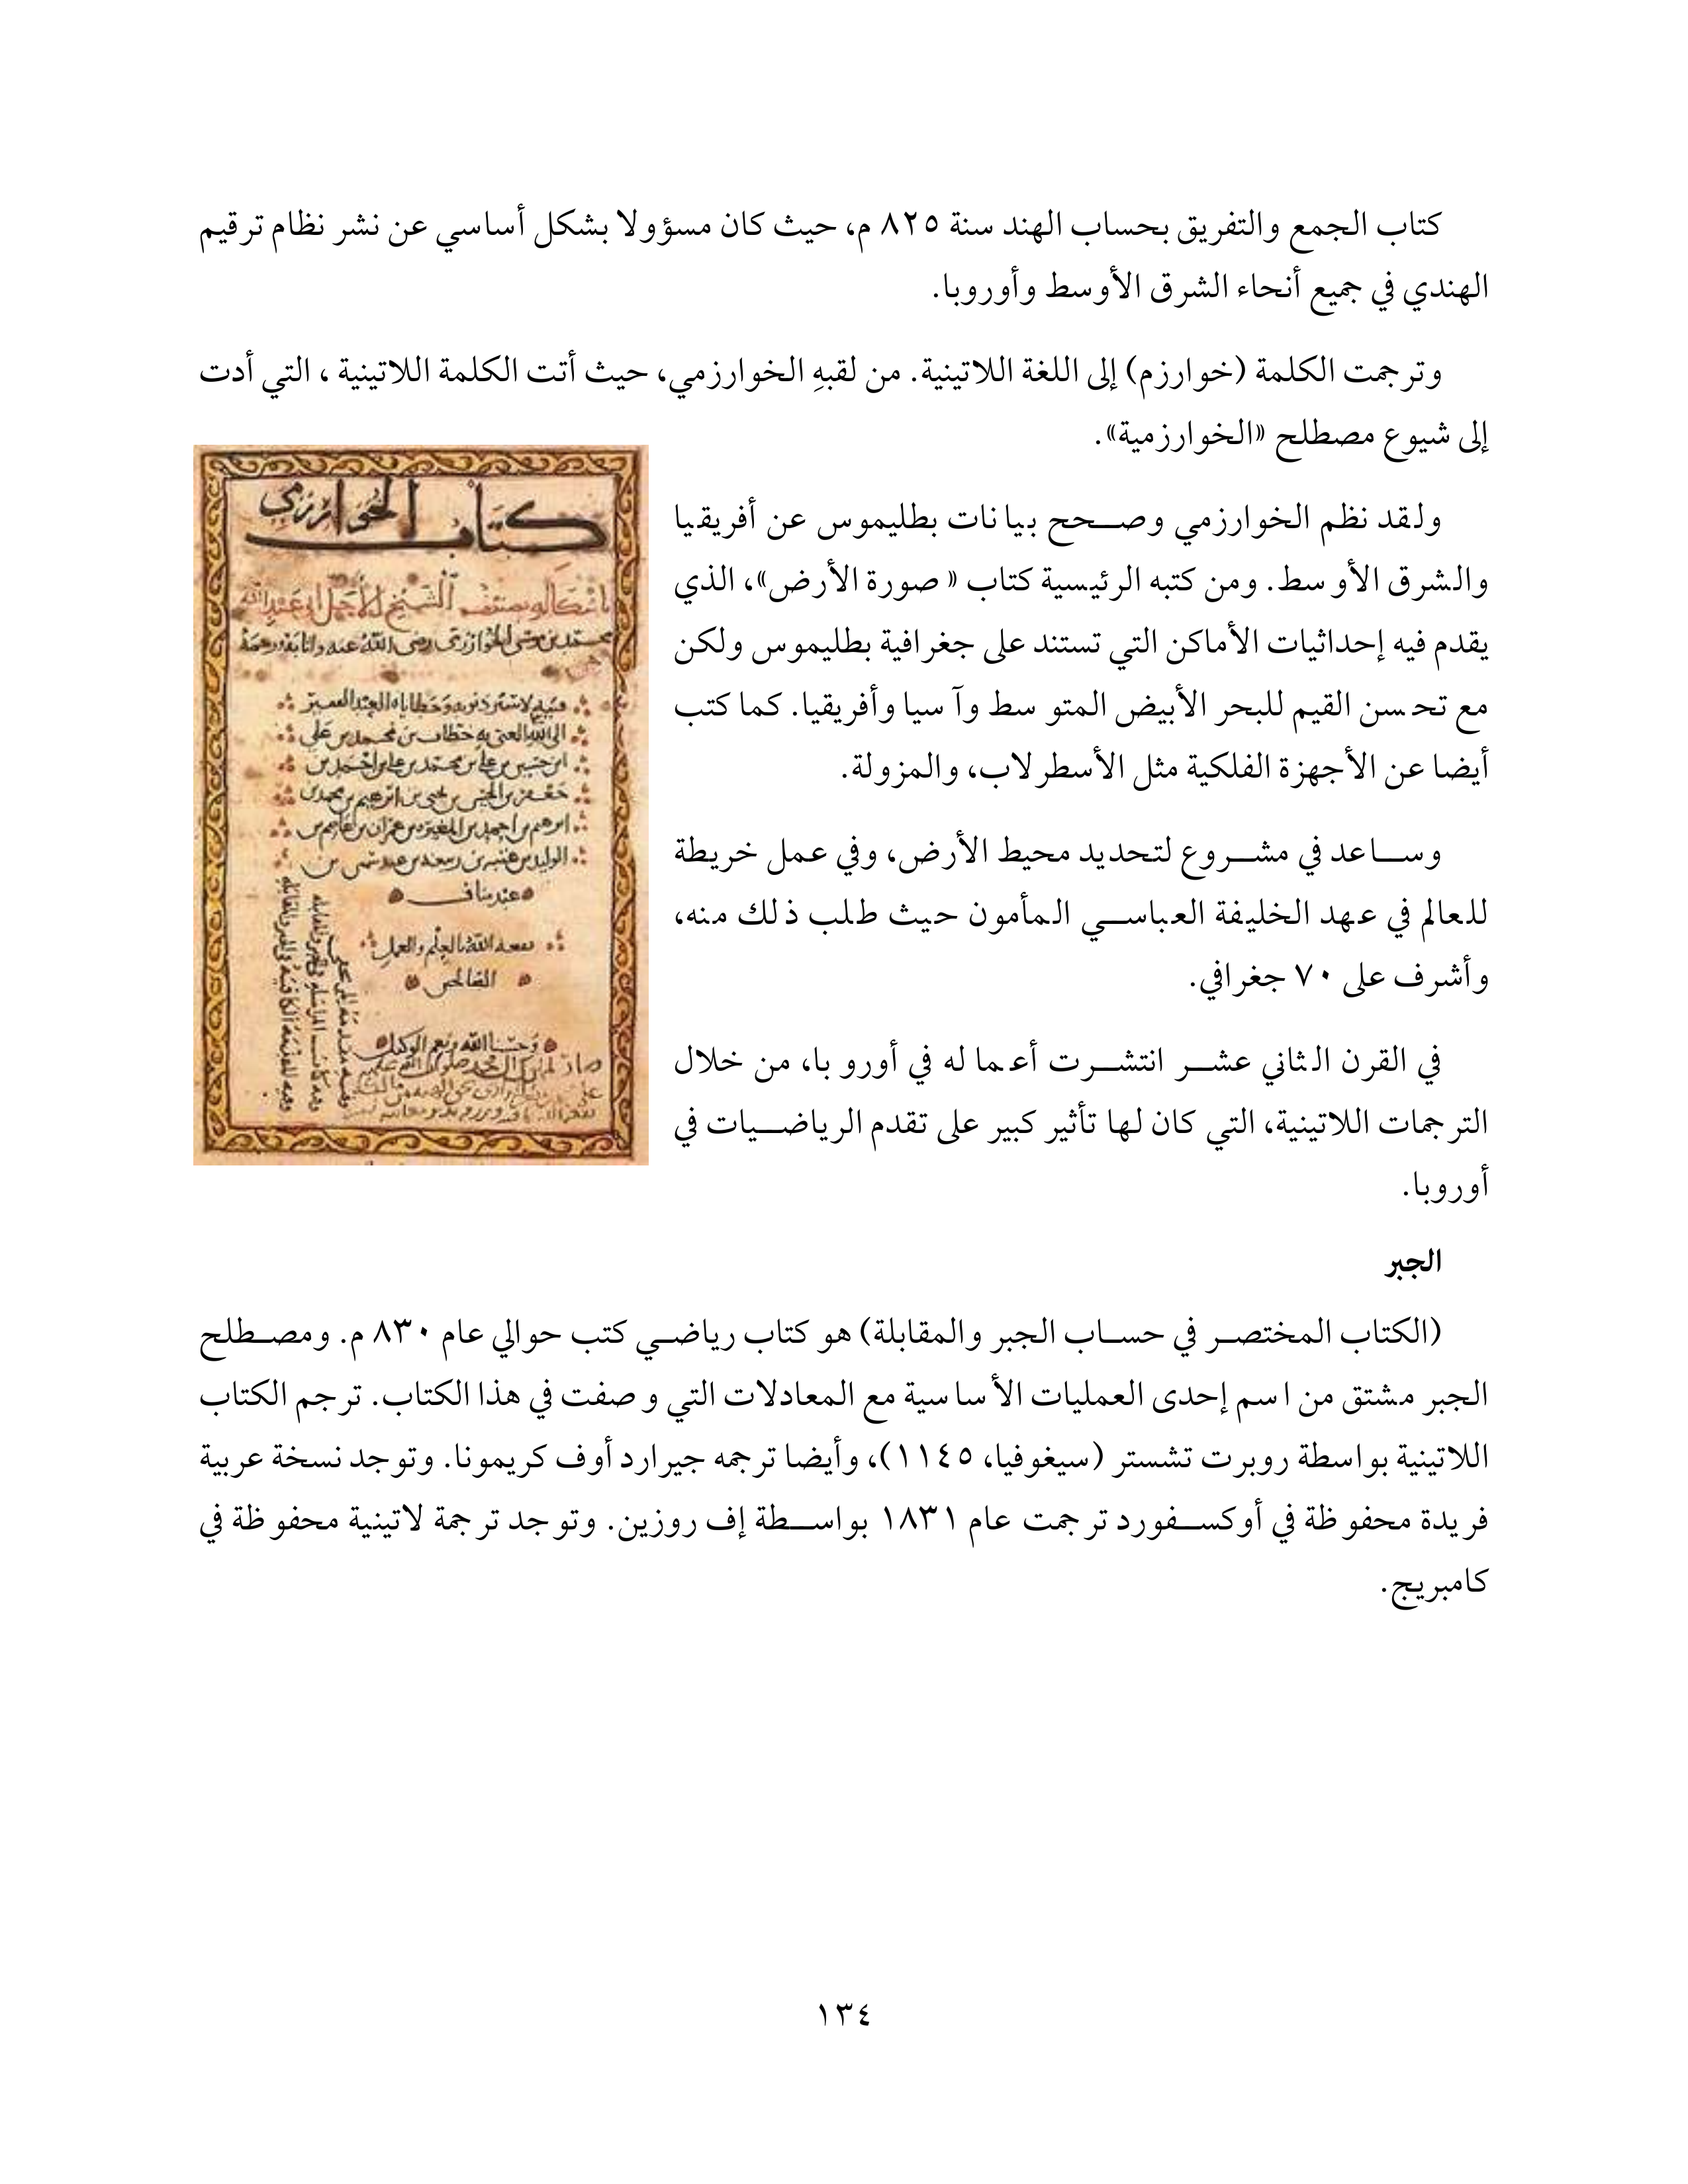 كتاب الجمع والتفريق بحساب الهند سنة ٨٢٥ م، حيث كان مسؤولا بشكل أساسي عن نشر نظام ترقيم
الهندي في جميع أنحاء الشرق الأوسط وأوروبا.
وترجمت الكلمة (خوارزم) إلى اللغة اللاتينية. من لقبهِ الخوارزمي، حيث أتت الكلمة اللاتينية ، التي أدت
إلى شيوع مصطلح «الخوارزمية».
ولقد نظم الخوارزمي وصحح بيانات بطليموس عن أفريقيا
والشرق الأوسط. ومن كتبه الرئيسية كتاب « صورة الأرض»، الذي
يقدم فيه إحداثيات الأماكن التي تستند على جغرافية بطليموس ولكن
مع تحسن القيم للبحر الأبيض المتوسط وآسيا وأفريقيا. كما كتب
أيضا عن الأجهزة الفلكية مثل الأسطرلاب، والمزولة.
وساعد في مشروع لتحديد محيط الأرض، وفي عمل خريطة
للعالم في عهد الخليفة العباسي المأمون حيث طلب ذلك منه،
وأشرف على ٧٠ جغرافي.
في القرن الثاني عشر انتشرت أعماله في أوروبا، من خلال
الترجمات اللاتينية، التي كان لها تأثير كبير على تقدم الرياضيات في
أوروبا.
كتاب الخوارزمي
الشيخ الأجل أبي عبد الله
محمد بن موسى الخوارزمي رضي الله عنه
عبد مناف
نفعه الله بالعلم والعمل
الصالحين
وحسبنا الله ونعم الوكيل
الجبر
(الكتاب المختصر في حساب الجبر والمقابلة) هو كتاب رياضي كتب حوالي عام ٨٣٠ م. ومصطلح
الجبر مشتق من اسم إحدى العمليات الأساسية مع المعادلات التي وصفت في هذا الكتاب. ترجم الكتاب
اللاتينية بواسطة روبرت تشستر (سيغوفيا، ١١٤٥)، وأيضا ترجمه جيرارد أوف كريمونا. وتوجد نسخة عربية
فريدة محفوظة في أوكسفورد ترجمت عام ١٨٣١ بواسطة إف روزين. وتوجد ترجمة لاتينية محفوظة في
كامبريج.
١٣٤